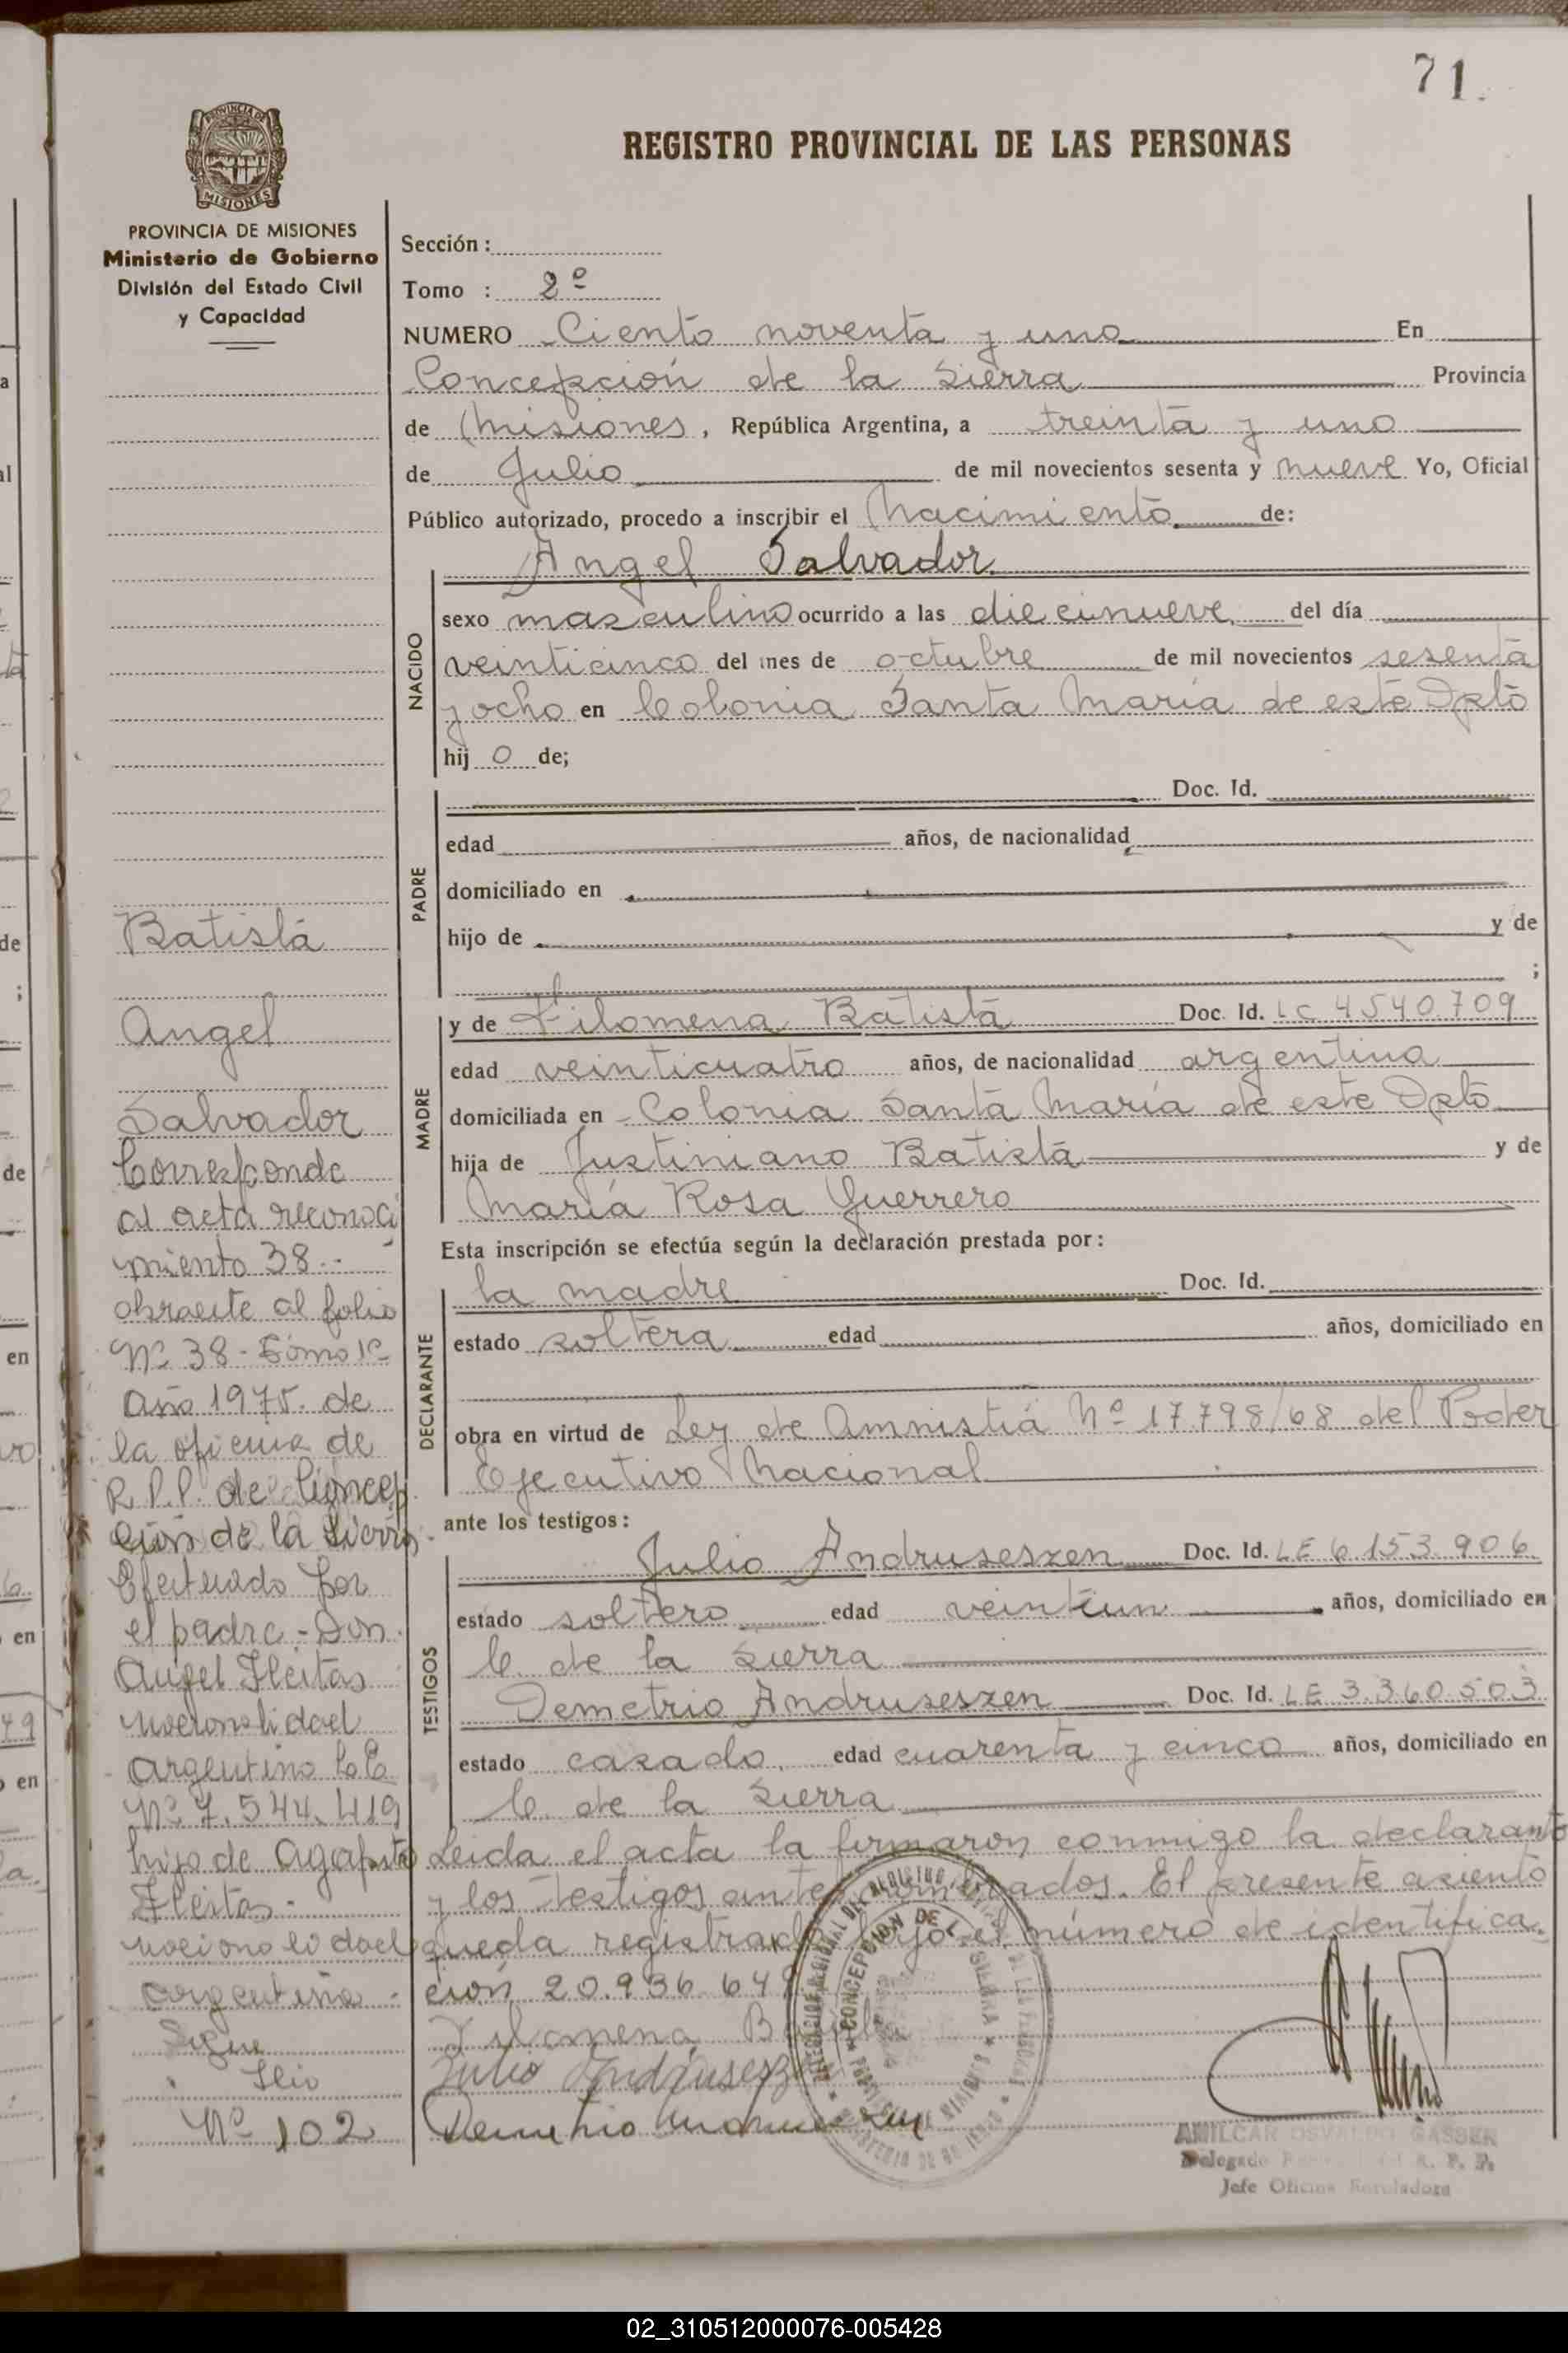 71.
REGISTRO PROVINCIAL DE LAS PERSONAS
PROVINCIA DE MISIONES
Ministerio de Gobierno
División del Estado Civil
y Capacidad
Sección :
Tomo : 2º
NUMERO Ciento noventa y uno En
Concepción de la Sierra Provincia
de Misiones, República Argentina, a treinta y uno
de Julio de mil novecientos sesenta y nueve Yo, Oficial
Público autorizado, procedo a inscribir el Nacimiento de:
NACIDO
Angel Salvador
sexo masculino ocurrido a las diecinueve del día
veinticinco del mes de octubre de mil novecientos sesenta
y ocho en Colonia Santa María de este Dpto
hij o de;
PADRE
Doc. Id.
edad años, de nacionalidad
domiciliado en
hijo de y de
;
MADRE
y de Filomena Batista Doc. Id. LC 4540.709
edad veinticuatro años, de nacionalidad argentina
domiciliada en Colonia Santa María de este Dpto
hija de Justiniano Batista y de
María Rosa Guerrero
Esta inscripción se efectúa según la declaración prestada por :
DECLARANTE
la madre Doc. Id.
estado soltera edad años, domiciliado en
obra en virtud de Ley de Amnistiá Nº 17798/68 del Poder
Ejecutivo Nacional
ante los testigos :
TESTIGOS
Julio Andruseszen Doc. Id. LE 6.153.906
estado soltero edad veintiun años, domiciliado en
C. de la Sierra
Demetrio Andruseszen Doc. Id. LE 3.360.503
estado casado edad cuarenta y cinco años, domiciliado en
C. de la Sierra
Leida el acta la firmaron conmigo la declarante
y los testigos antes nombrados. El presente asiento
queda registrado bajo el número de identifica.
ción 20.936.649
Filomena Batista
Julio Andrusesz
Demetrio
AMILCAR OSVALDO GASSEN
Delegado R. P. P.
Jefe Oficina Roruladora
Batista
Angel
Salvador
Corresponde
al acta reconoci
miento 38.-
obrante al folio
Nº 38 - Tomo 1º
Año 1975. de
la oficina de
R.P.P. de Concep
ción de la Sierra
Efectuado por
el padre - Don
Angel Fleitas
nacionalidad
Argentino
Nº 7.544.419
hijo de Agapito
Fleitas -
nacionalidad
argentina -
Sigue
folio
Nº 102
02_310512000076-005428